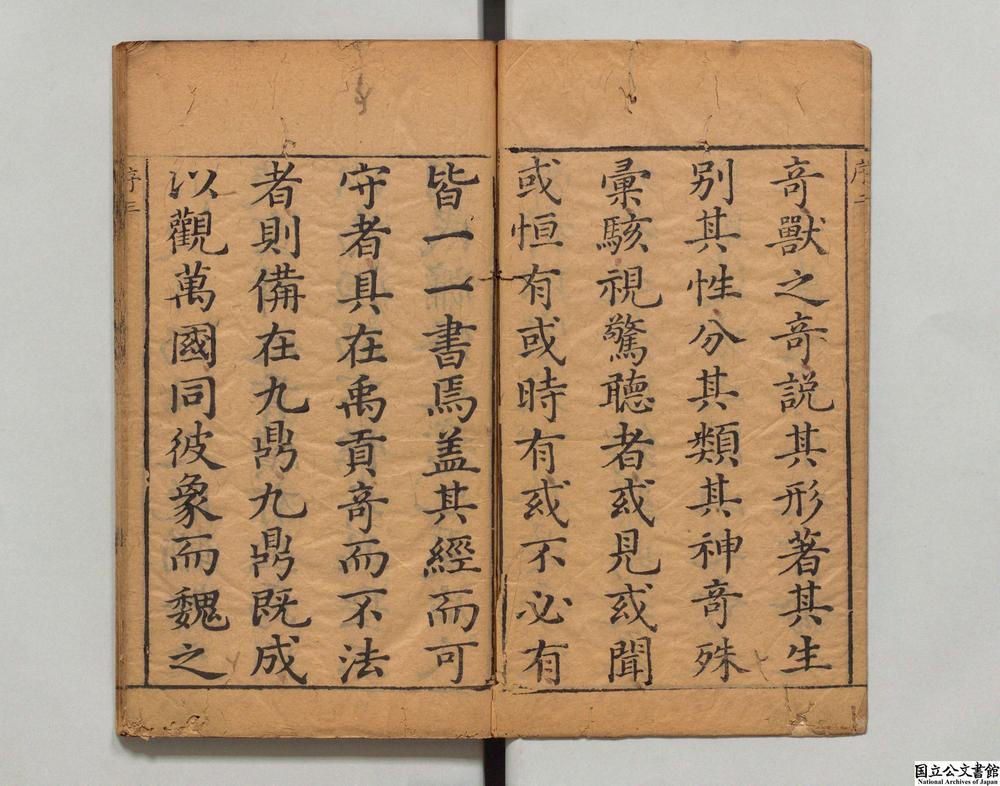 序二
奇獸之奇説其形著其生
别其性分其類其神奇殊
彚駭視驚聽者或見或聞
或恒有或時有或不必有
皆一一書焉盖其經而可
守者具在禹貢奇而不法
者則備在九鼎九鼎既成
以觀萬國同彼象而魏之
序三
国立公文書館
National Archives of Japan